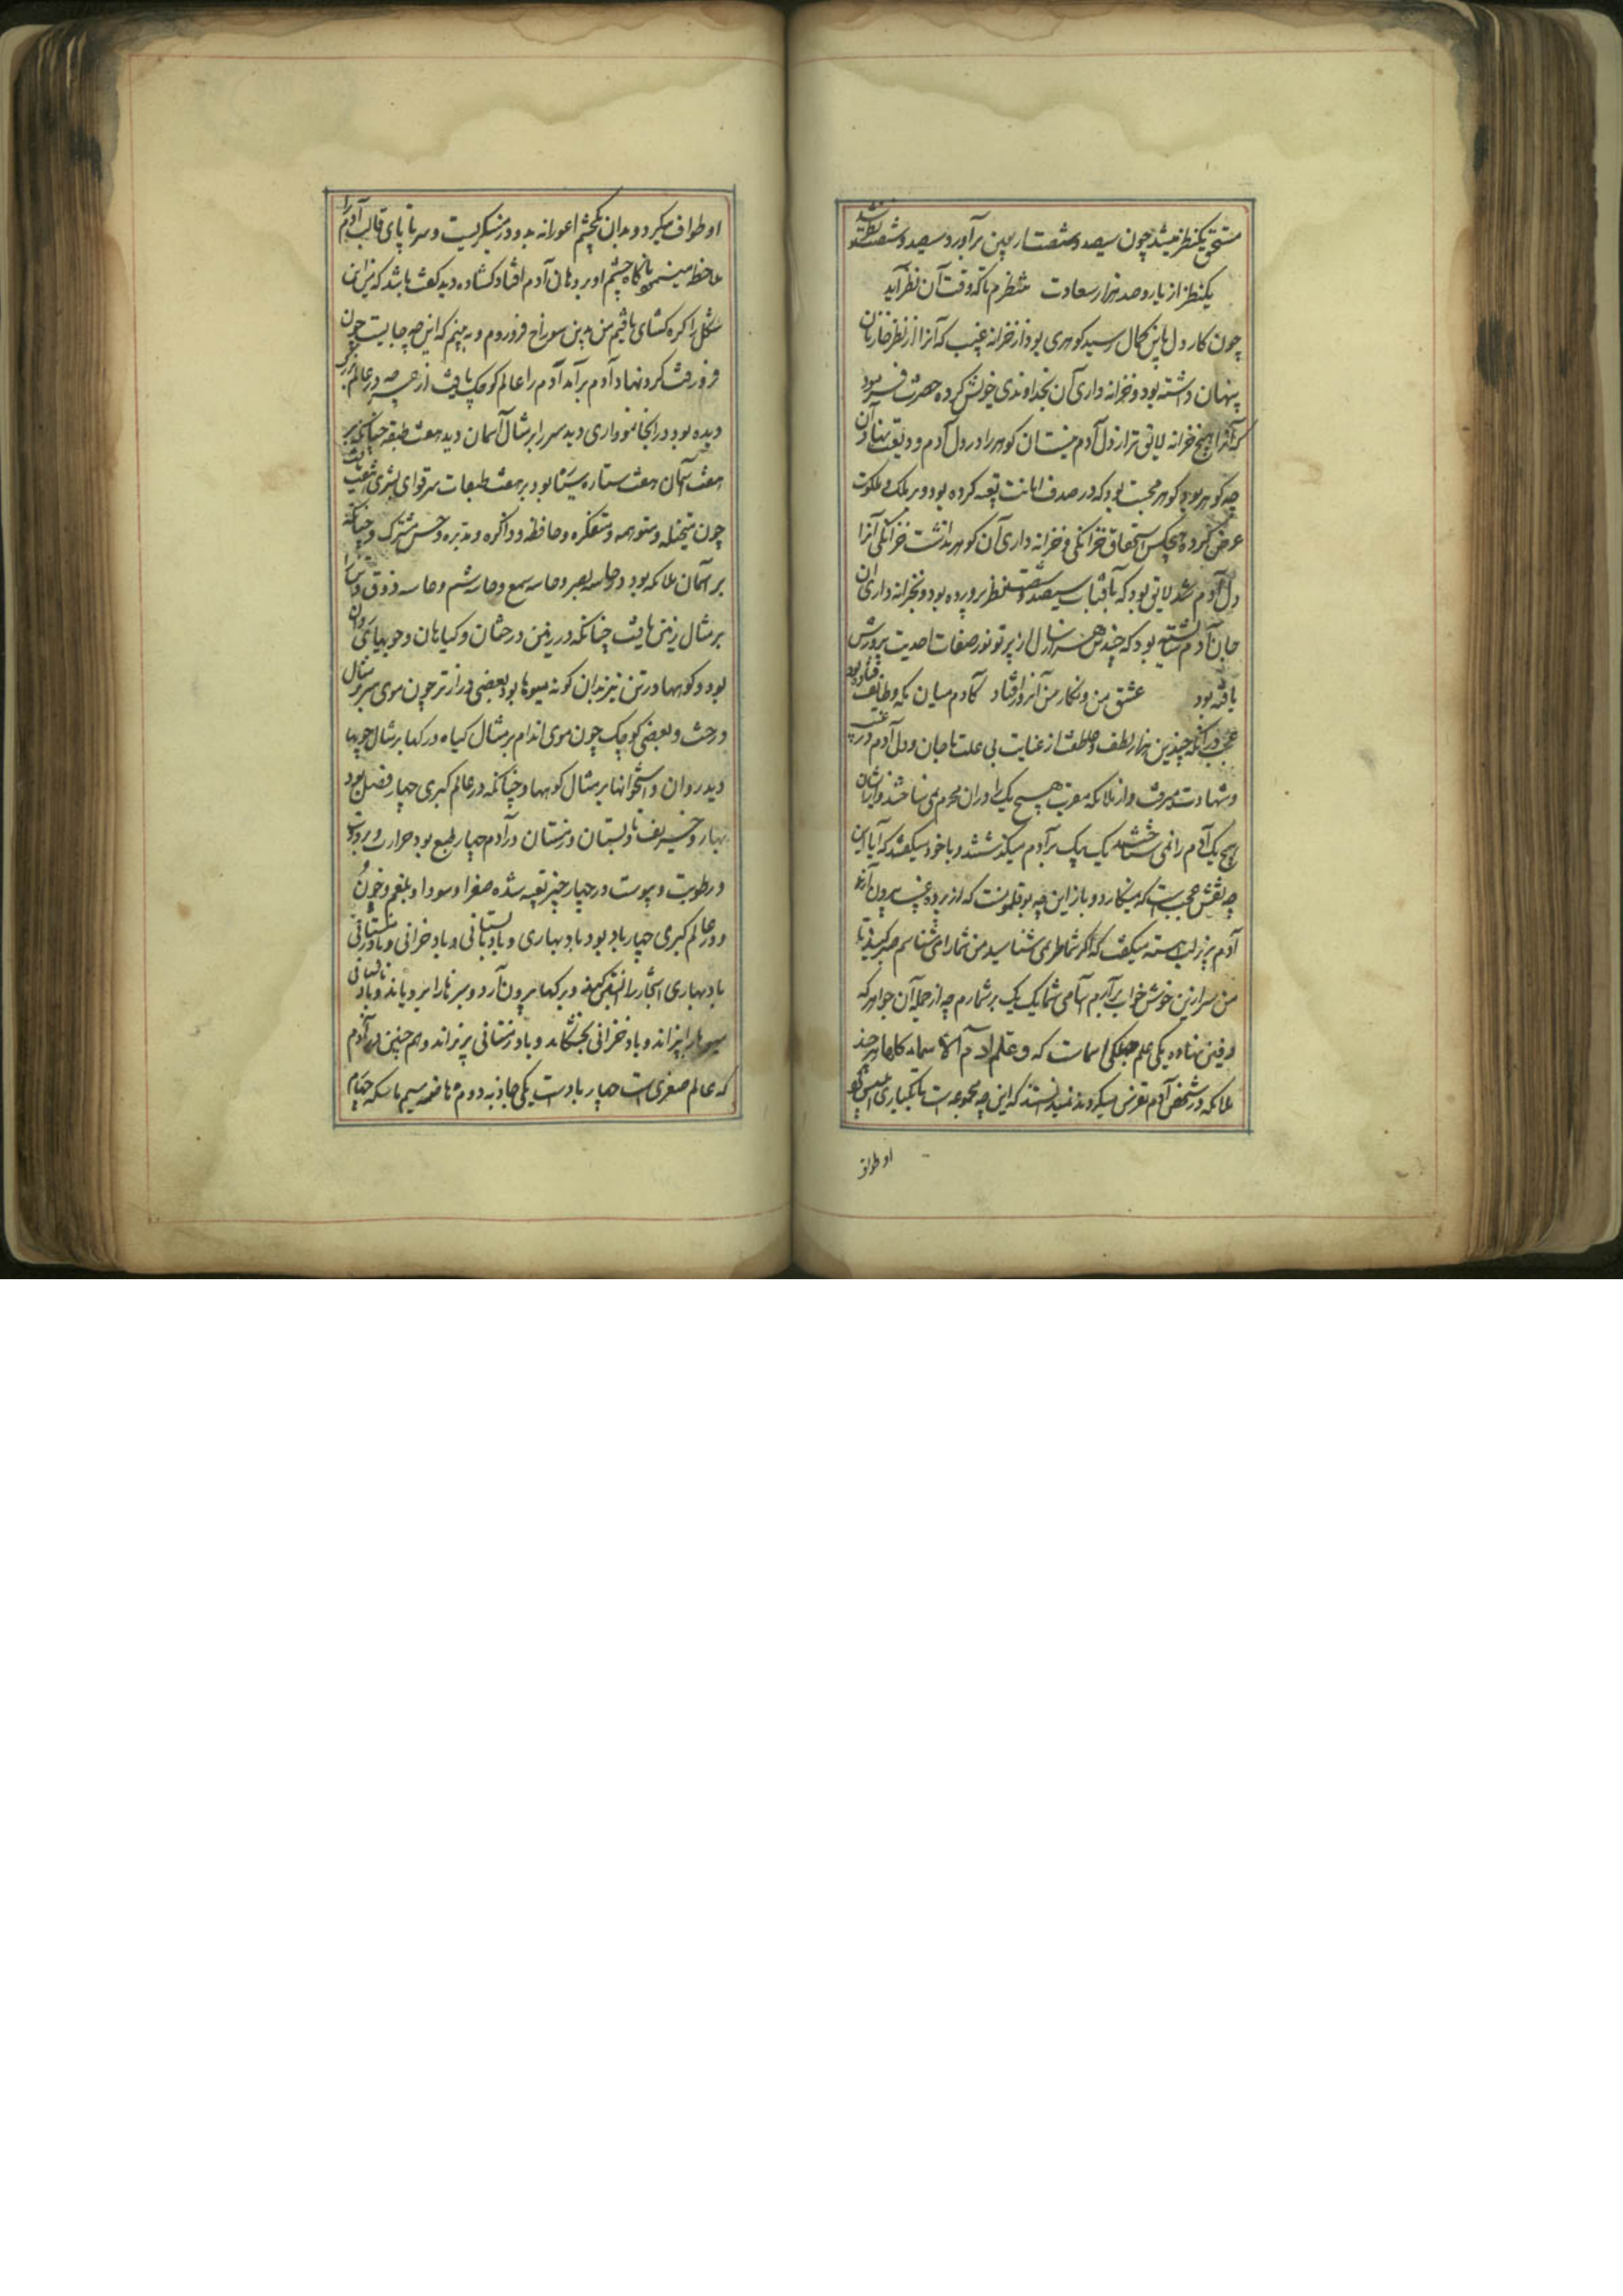 مستحق یکنظر میشد چون سیصد و شصت اربعین برآورد و سیصد و شصت نظر شد
یکنظر از یار و صد هزار سعادت منتظرم تا که وقت آن نظر آید
چون کار دل باین کمال رسید کوهری بود از خزانه غیب که آنرا از نظر خازنان
پنهان داشته بود و خزانه داری آن بخداوندی خویش کرده حضرت فرمود
که آنرا هیچ خزانه لایق تر از دل آدم نیست آن کوهر را در دل آدم ودیعت نهاد آن
چه کوهر بود کوهر محبت بود که در صدف امانت تعبیه کرده بود و بر ملک و ملکوت
عرض کرده هیچکس استحقاق خزانکی و خزانه داری آن کوهر نداشت خزانکی آنرا
دل آدم لایق بود که بآفتاب سیصد و شصت نظر پرورده بود و بخزانه داری آن
جان آدم شایسته بود که چندین هزار سال از پرتو نور صفات احدیت پرورش
یافته بود عشق من و نکار من آنروز اوفتاد کآدم میان مکه و طایف فتاده بود
عجب در آنکه چندین هزار لطف و عاطفت از عنایت بی علت با جان و دل آدم در غیب
و شهادت میرفت و از ملائکه مقرب هیچ یک را دران محرم نمی ساختند و ازیشان
هیچ یک آدم را نمی شناختند یک بیک بر آدم میکذشتند و با خود میکفتند که آیا این
چه نقش عجیب است که مینکارد و باز این چه بوقلمونست که از پرده غیب بیرون آرند
آدم بزیر لب آهسته میکفت که اکر شما مرا نمی شناسید من شما را می شناسم صبر کنید تا
من سر ازین خوش خواب برآرم اسامی شما یک یک برشمارم چه از جمله آن جواهر که
دفین نهاده یکی علم جملکی اسما است که و علم آدم الاسماء کلها هر چند
ملائکه در شخص آدم تفرس میکردند نمیدانستند که این چه مجموعه است تا یکباری ابلیس کو
او طواف
او طواف میکرد و بدان یکچشم اعورانه بدو در مینکریست و سر تا پای قالب آدم را
ملاحظه مینمود ناکاه چشم او بر دهان آدم افتاد کشاده دید کفت باشد که من این
شکل را کره کشای یافتم من بدین سوراخ فرو روم و به بینم که این چه جایست چون
فرو رفت کرد نهاد آدم برآمد آدم را عالم کوچک یافت از هر چه در عالم بزرک
دیده بود در آنجا نموداری دید سر را بر مثال آسمان دید هفت طبقه چنانکه بر
هفت آسمان هفت ستاره سیار بود بر هفت طبقات سر قوای بشری هفت یافت
چون متخیله و متوهمه و متفکره و حافظه و ذاکره و مدبره و حس مشترک و چنانکه
بر آسمان ملائکه بود در سر حاسه بصر و حاسه سمع و حاسه شم و حاسه ذوق و تن را
بر مثال زمین یافت چنانکه در زمین درختان و کیاهان و جویهای روان
بود و کوهها در تن نیز بدان کونه میوها بود بعضی درازتر چون موی سر بر مثال
درخت و بعضی کوچک چون موی اندام بر مثال کیاه و رکها بر مثال جویها
دید روان و استخوانها بر مثال کوهها و چنانکه در عالم کبری چهار فصل بود
بهار و خریف و تابستان و زمستان در آدم چهار طبع بود حرارت و برودت
و رطوبت و یبوست در چهار چیز تعبیه شده صفرا و سودا و بلغم و خون
و در عالم کبری چهار باد بود باد بهاری و باد تابستانی و باد خزانی و باد زمستانی
باد بهاری اشجار را آبستن کند و برکها بیرون آرد و سبزها را برویاند و باد تابستانی
میوها را بپزاند و باد خزانی بخشکاند و باد زمستانی بریزاند و هم چنین در آدم
که عالم صغری است چهار باد است یکی جاذبه دوم هاضمه سیم ماسکه چهارم